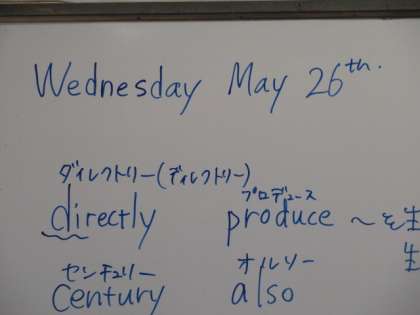 Wednesday May 26th.
ダイレクトリー(ディレクトリー)
プロデュース
directly produce ～を生
生
センチュリー オルソー
century also